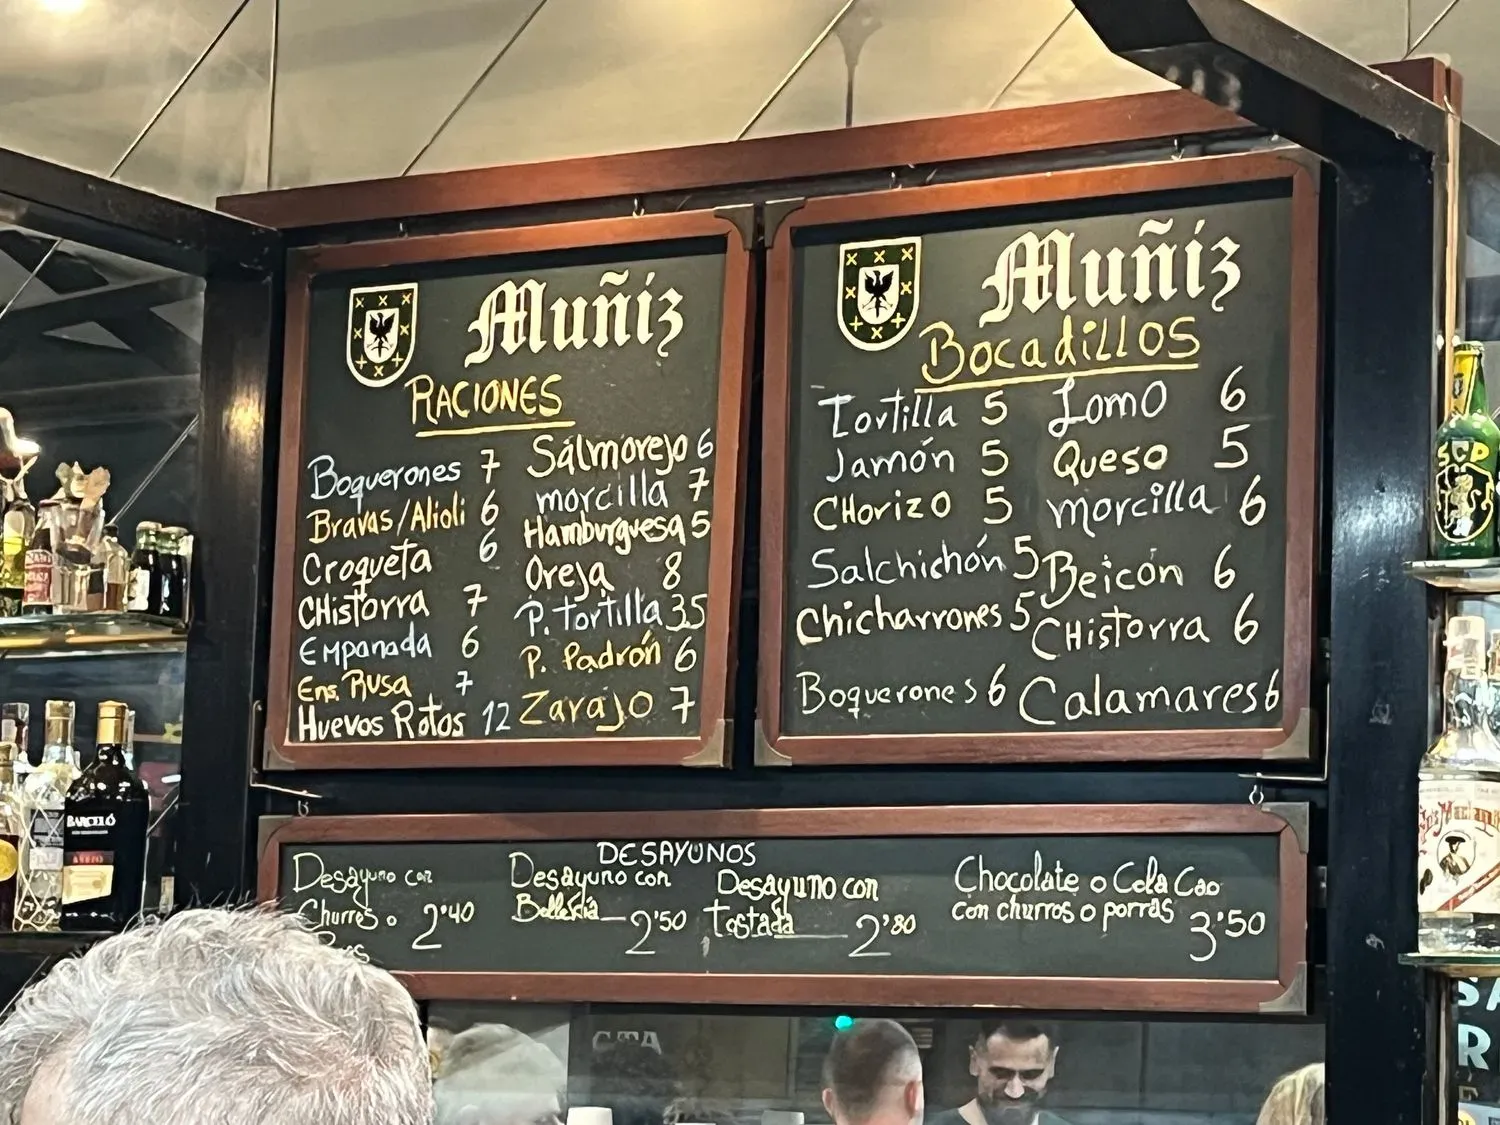 Muñiz
RACIONES
Boquerones 7
Bravas/Alioli 6
Croqueta 6
CHistorra 7
Empanada 6
Ens. Rusa 7
Huevos Rotos 12
Salmorejo 6
morcilla 7
Hamburguesa 5
Oreja 8
P. Tortilla 35
P. Padrón 6
Zarajo 7
Muñiz
Bocadillos
Tortilla 5
Jamón 5
CHorizo 5
Salchichón 5
Chicharrones 5
Boquerones 6
Lomo 6
Queso 5
morcilla 6
Beicon 6
CHistorra 6
Calamares 6
DESAYUNOS
Desayuno con
Churros o 2'40
Desayuno con
2'50
Desayuno con
Tostada 2'80
Chocolate o Cola Cao
con churros o porras 3'50
BARCELÓ
AÑEJO
SCP